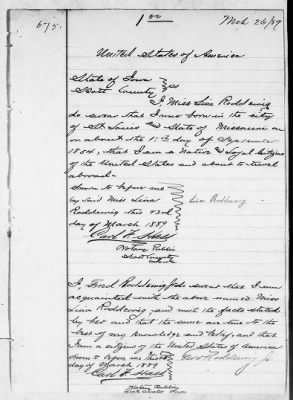 675.
1 00
Mch 26/89
United States of America
State of Iowa
Scott County } ss
I, Miss Lina Roddewig
do swear that I was born in the city
of St. Louis and State of Missouri on
or about the day of
that I am a Native & Loyal Citizen
of the United States and about to travel
abroad.
Sworn to before me
by said Miss Lina
Roddewig this 23rd
day of March 1889
Notary Public
Scott County
I, Ferd Roddewig Jr do swear that I am
acquainted with the above named Miss
Lina Roddewig and with the facts stated
by her and that the same are true to the
best of my knowledge and belief and that
I am a citizen of the United States of America
Sworn to before me this 23
day of March 1889
Ferd Roddewig Jr
Notary Public
Scott County Iowa